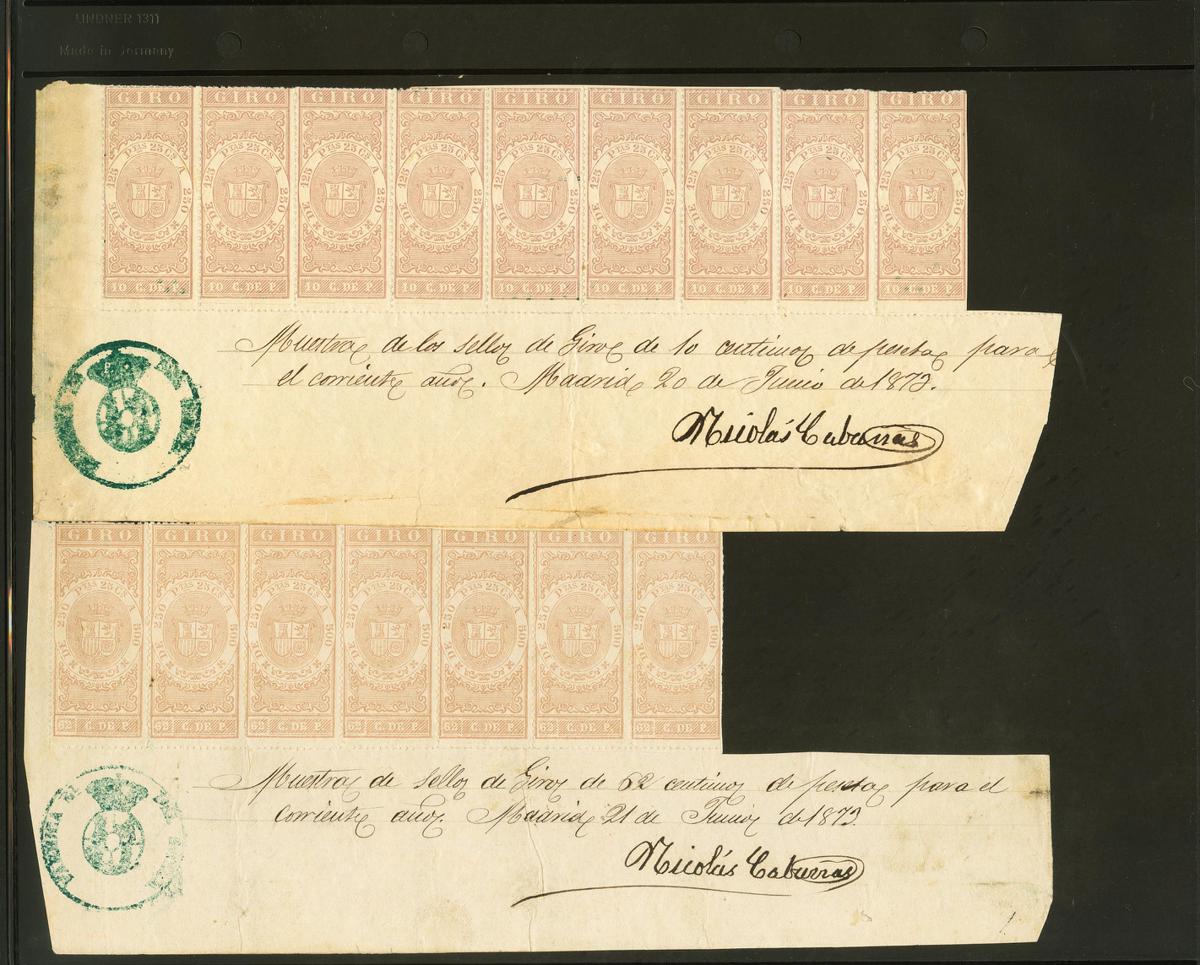 LINDNER 1311
Made in Germany
GIRO GIRO GIRO GIRO GIRO GIRO GIRO GIRO GIRO
DE 125 PTAS 25 CS A 250 DE 125 PTAS 25 CS A 250 DE 125 PTAS 25 CS A 250 DE 125 PTAS 25 CS A 250 DE 125 PTAS 25 CS A 250 DE 125 PTAS 25 CS A 250 DE 125 PTAS 25 CS A 250 DE 125 PTAS 25 CS A 250 DE 125 PTAS 25 CS A 250
10 C. DE P. 10 C. DE P. 10 C. DE P. 10 C. DE P. 10 C. DE P. 10 C. DE P. 10 C. DE P. 10 C. DE P. 10 C. DE P.
Muestra de los sellos de Giro de 10 centimos de peseta para
el corriente año. Madrid 20 de Junio de 1873.
Nicolás Cabañas
GIRO GIRO GIRO GIRO GIRO GIRO GIRO
DE 250 PTAS 25 CS A 500 DE 250 PTAS 25 CS A 500 DE 250 PTAS 25 CS A 500 DE 250 PTAS 25 CS A 500 DE 250 PTAS 25 CS A 500 DE 250 PTAS 25 CS A 500 DE 250 PTAS 25 CS A 500
62 C. DE P. 62 C. DE P. 62 C. DE P. 62 C. DE P. 62 C. DE P. 62 C. DE P. 62 C. DE P.
Muestra de sellos de Giro de 62 centimos de peseta para el
corriente año. Madrid 21 de Junio de 1873.
Nicolás Cabañas